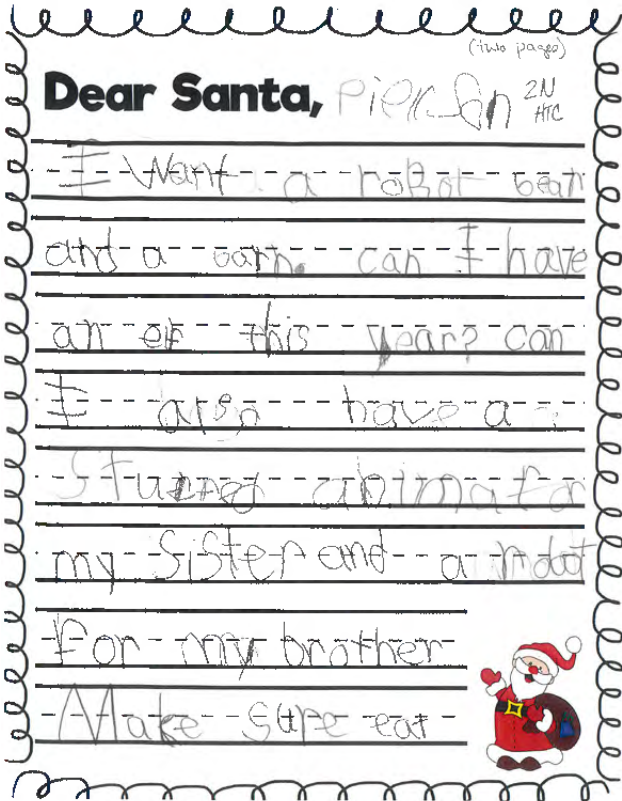 (two pages)
Dear Santa, Pierson 2N
HTC
I Want a roBot bear
and a barn. can I have
an elf this year? can
I also have a
Stuffed animal for
my SiSter and a robot
for my brother
Make Sure eat